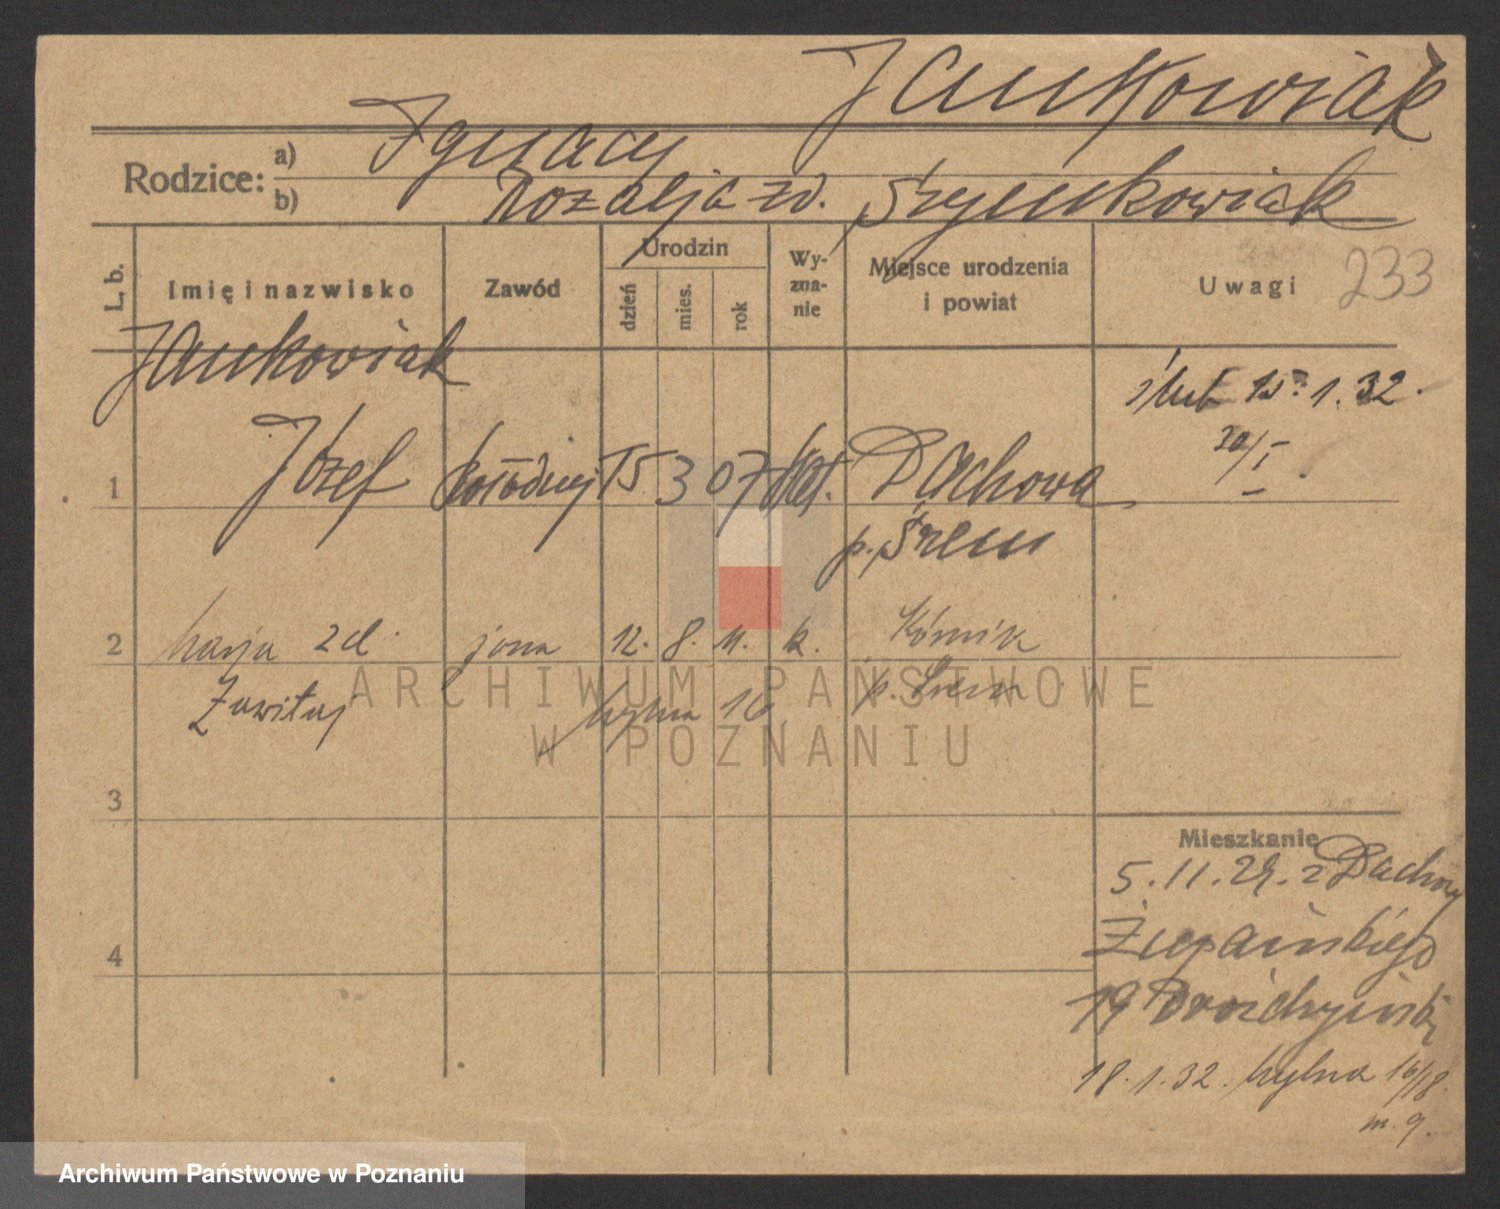 Jankowiak
Rodzice: a) Ignacy
b) Rozalja zd. Szymkowiak
L. b.
Imię i nazwisko
Zawód
Urodzin
dzień
mies.
rok
Wy-
zna-
nie
Miejsce urodzenia
i powiat
Uwagi
233
Jankowiak
ślub 1.32.
20/I
1 Józef 15 3 07 kat. Dachowa
p. Śrem
2 Marja zd. żona 12. 8. 11. k. Kórnik
Zawitaj Młyńska 16 p. Śrem
ARCHIWUM PAŃSTWOWE
W POZNANIU
3
Mieszkanie
5.11.29. z Dachowy
4
Żupańskiego
19
18.1.32. 16/18.
m. 9.
Archiwum Państwowe w Poznaniu